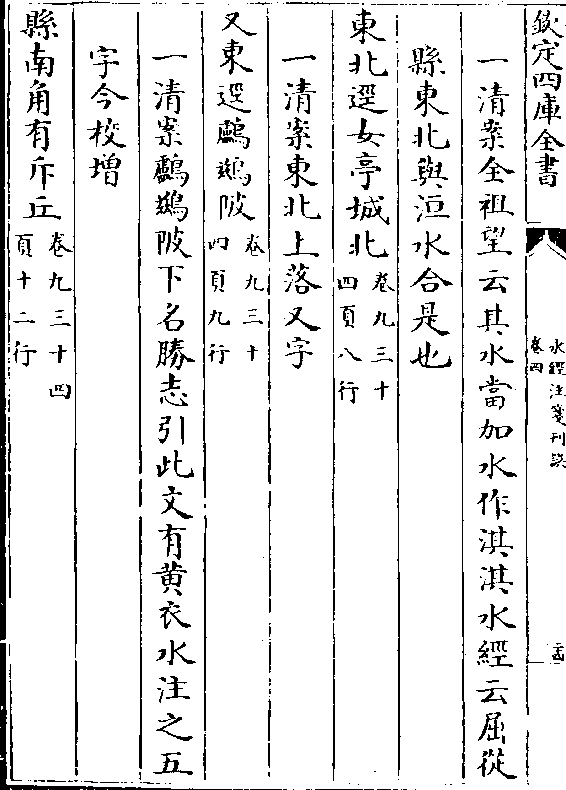 欽定四庫全書
水經注箋刊誤
卷四
一清案全祖望云其水當加水作淇淇水經云屈從
縣東北與洹水合是也
東北逕女亭城北卷九三十四頁八行
一清案東北上落又字
又東逕鸕鷀陂卷九三十四頁九行
一清案鸕鷀陂下名勝志引此文有黄衣水注之五
字今校增
縣南角有斥丘卷九三十四頁十二行